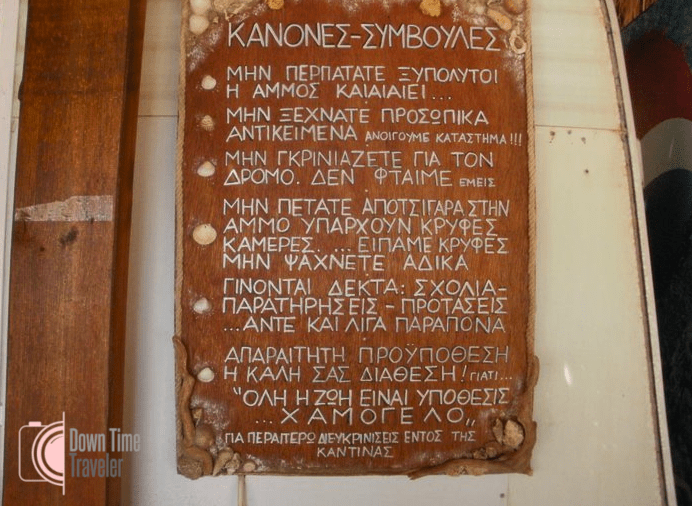 ΚΑΝΟΝΕΣ-ΣΥΜΒΟΥΛΕΣ
ΜΗΝ ΠΕΡΠΑΤΑΤΕ ΞΥΠΟΛΥΤΟΙ
Η ΑΜΜΟΣ ΚΑΙΑΙΑΙΕΙ...
ΜΗΝ ΞΕΧΝΑΤΕ ΠΡΟΣΩΠΙΚΑ
ΑΝΤΙΚΕΙΜΕΝΑ ΑΝΟΙΓΟΥΜΕ ΚΑΤΑΣΤΗΜΑ!!!
ΜΗΝ ΓΚΡΙΝΙΑΖΕΤΕ ΓΙΑ ΤΟΝ
ΔΡΟΜΟ. ΔΕΝ ΦΤΑΙΜΕ ΕΜΕΙΣ
ΜΗΝ ΠΕΤΑΤΕ ΑΠΟΤΣΙΓΑΡΑ ΣΤΗΝ
ΑΜΜΟ ΥΠΑΡΧΟΥΝ ΚΡΥΦΕΣ
ΚΑΜΕΡΕΣ.... ΕΙΠΑΜΕ ΚΡΥΦΕΣ
ΜΗΝ ΨΑΧΝΕΤΕ ΑΔΙΚΑ
ΓΙΝΟΝΤΑΙ ΔΕΚΤΑ: ΣΧΟΛΙΑ-
ΠΑΡΑΤΗΡΗΣΕΙΣ - ΠΡΟΤΑΣΕΙΣ
...ΑΝΤΕ ΚΑΙ ΛΙΓΑ ΠΑΡΑΠΟΝΑ
ΑΠΑΡΑΙΤΗΤΗ ΠΡΟΫΠΟΘΕΣΗ
Η ΚΑΛΗ ΣΑΣ ΔΙΑΘΕΣΗ! ΓΙΑΤΙ...
"ΟΛΗ Η ΖΩΗ ΕΙΝΑΙ ΥΠΟΘΕΣΙΣ
...ΧΑΜΟΓΕΛΟ„
ΓΙΑ ΠΕΡΑΙΤΕΡΩ ΔΙΕΥΚΡΙΝΙΣΕΙΣ ΕΝΤΟΣ ΤΗΣ
ΚΑΝΤΙΝΑΣ
Down Time
Traveler